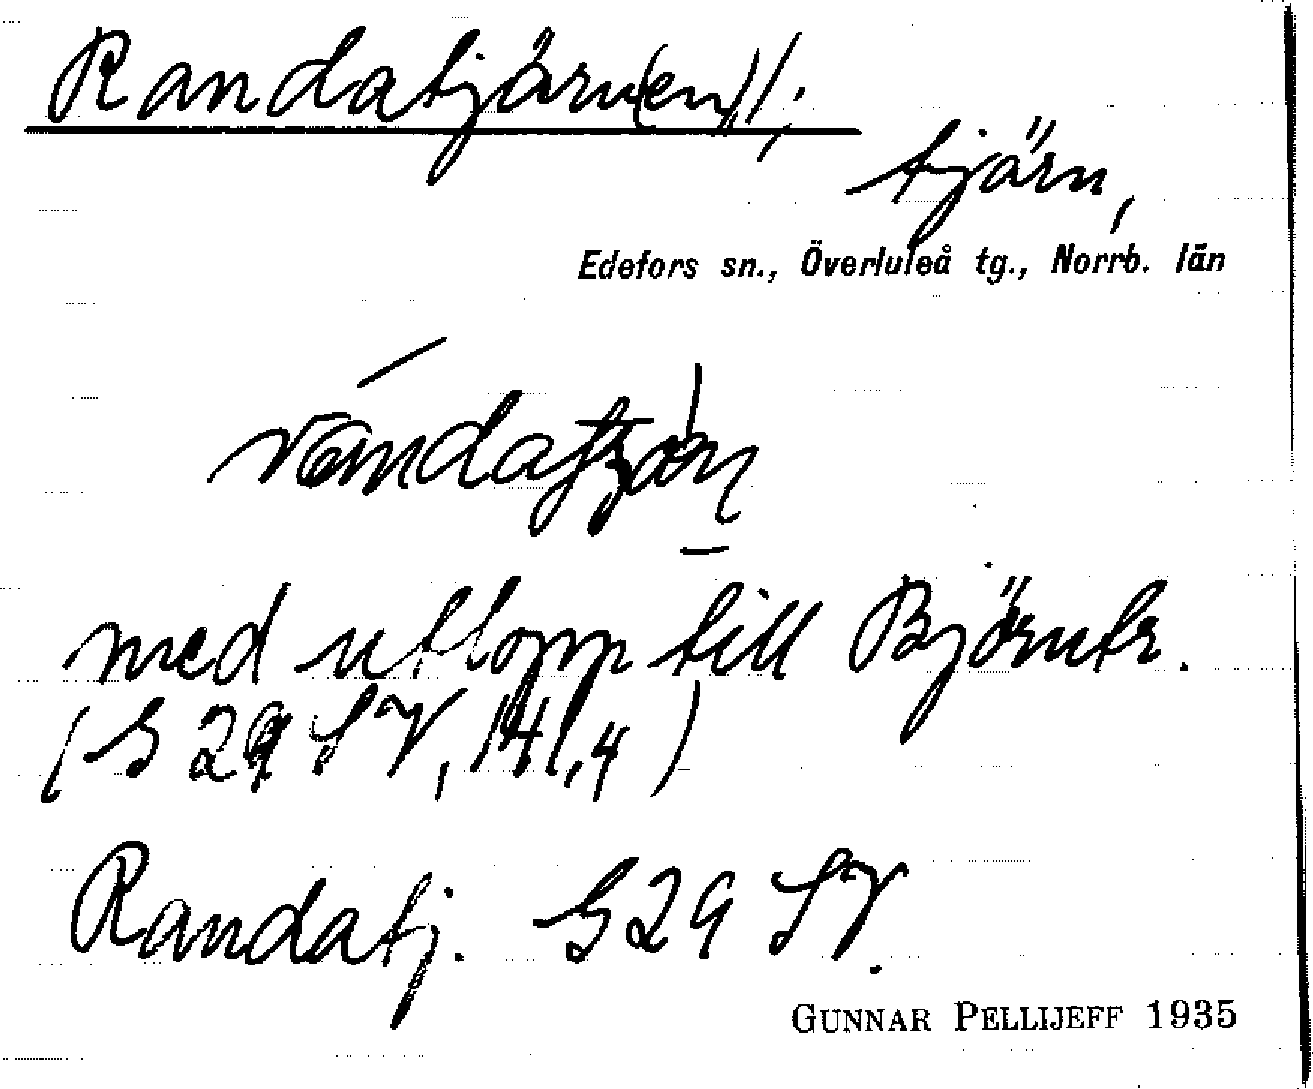 Randatjärn(en);
tjärn,
Edefors sn., Överluleå tg., Norrb. län
med utlopp till Björntr.
(G 29 SV, 141,4)
Randatj. G29 SV.
GUNNAR PELLIJEFF 1935